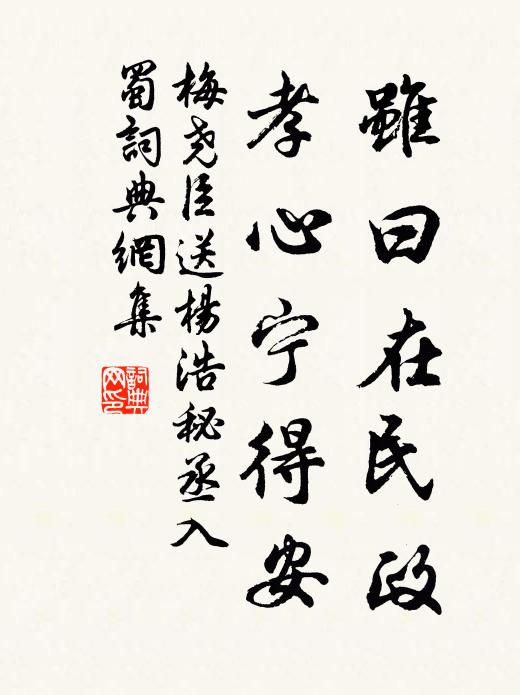 雖曰在民政
孝心宁得安
梅尧臣送楊浩秘丞入
蜀詞典網集
詞典
网印